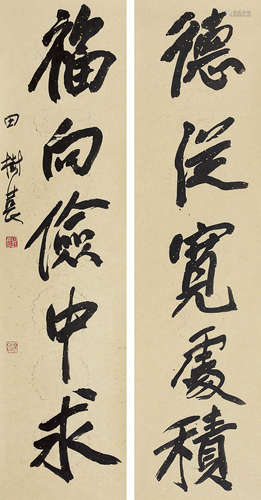 德從寬處積
福向儉中求
田樹萇